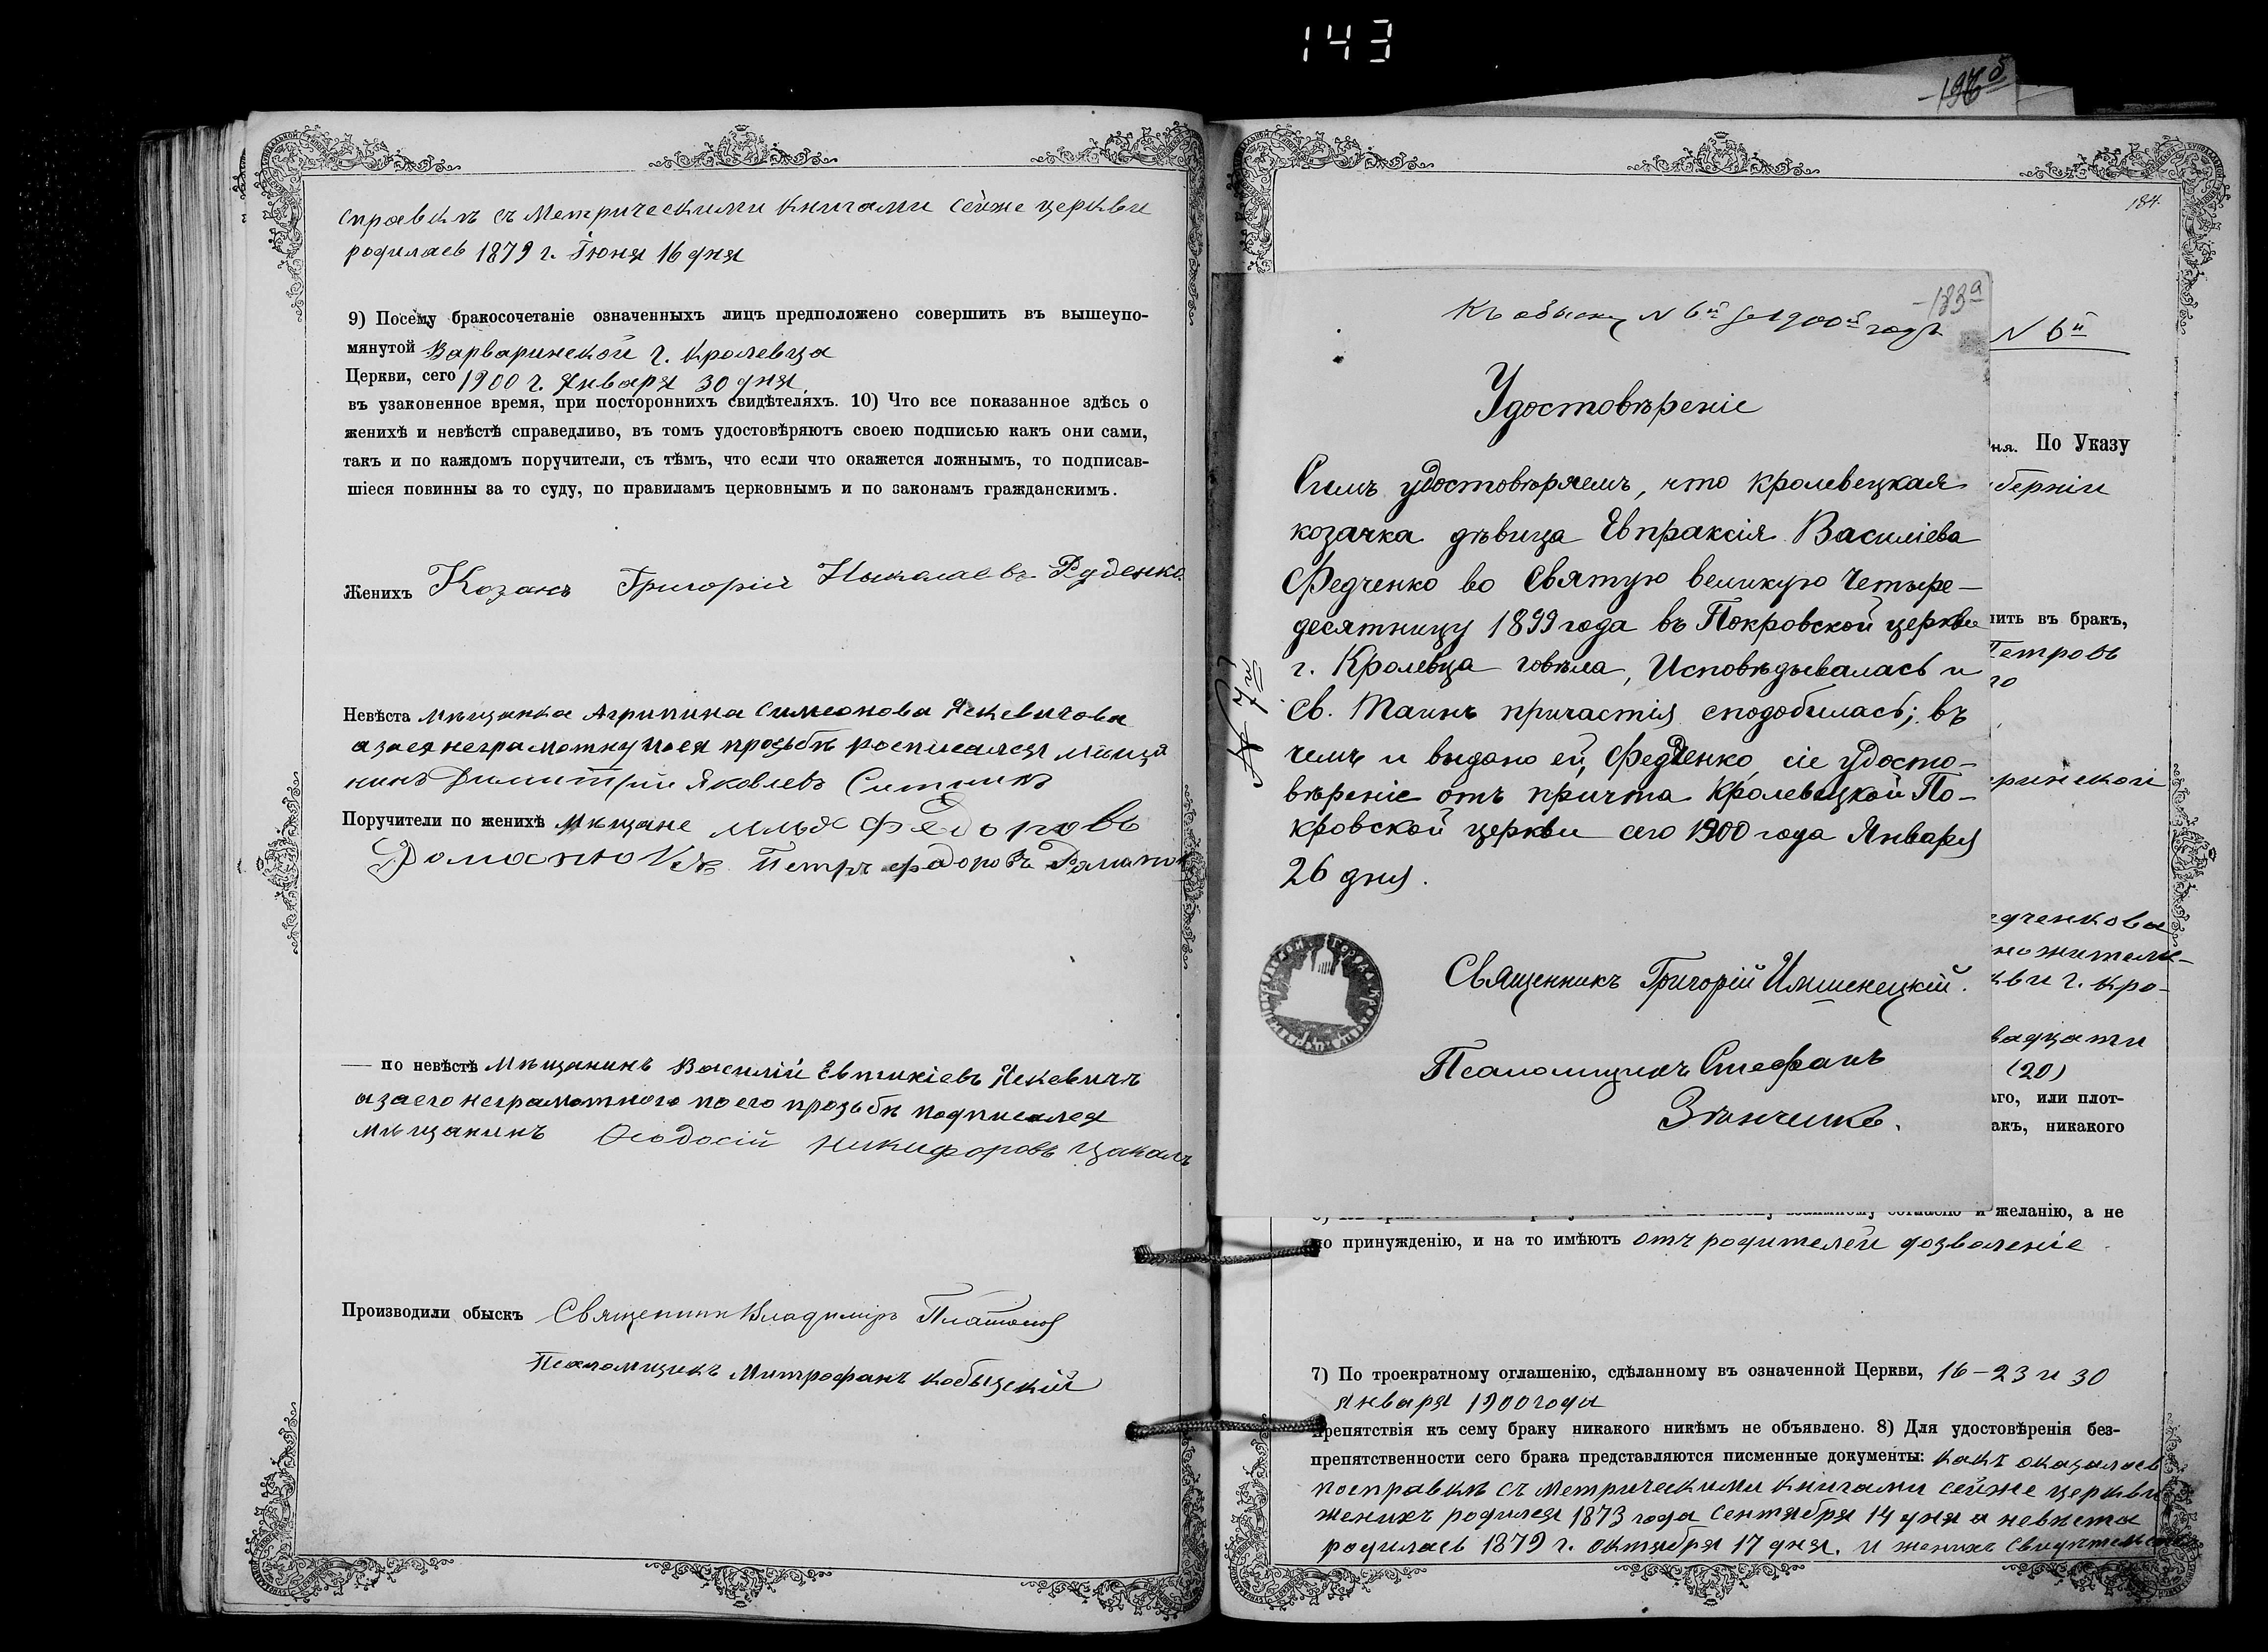 143
справкѣ съ Метрическими книгами сейже церкви
родилась 1879 г. Іюня 16 дня
9) Посему бракосочетаніе означенныхъ лицъ предположено совершить въ вышеупо-
мянутой Варваринской г. Кролевца
Церкви, сего 1900 г. Января 30 дня
въ узаконенное время, при постороннихъ свидѣтеляхъ. 10) Что все показанное здѣсь о
женихѣ и невѣстѣ справедливо, въ томъ удостовѣряютъ своею подписью какъ они сами,
такъ и по каждомъ поручители, съ тѣмъ, что если что окажется ложнымъ, то подписав-
шіеся повинны за то суду, по правиламъ церковнымъ и по законамъ гражданскимъ.
Женихъ Козакъ Григорій Николаевъ Руденко
Невѣста мѣщанка Агрипина Симеонова Яскевичова
а за ея неграмотну по ея прозьбѣ росписался мѣща
нинъ Димитрій Яковлевъ Ситникъ
Поручители по женихѣ Мѣщане Илья Федоровъ
Петръ Федоровъ
— по невѣстѣ Мѣщанинъ Василій Евтихіевъ Яскевичъ
а за его неграмотного по его прозьбѣ подписался
мѣщанинъ Ѳеодосій Никифоровъ Цакалъ
Производили обыскъ Священникъ Владиміръ Платонов
Псаломщикъ Митрофанъ Кобыцскій
184.
-183а
Къ обыску N 6й за 1900й годъ
Удостовѣреніе
Симъ удостовѣряемъ, что кролевецкая
козачка дѣвица Евпраксія Василіева
Федченко во Святую великую Четыре-
десятницу 1899 года въ Покровской церкви
г. Кролевца говѣла, Исповѣдывалась и
Св. Таинъ причастія сподобилась; въ
чемъ и выдано ей, Федченко, сіе удосто-
вѣреніе отъ причта Кролевецкой По-
кровской церкви сего 1900 года Января
26 дня.
Священникъ Григорій Имшенецкій.
Псаломщикъ Стефанъ
Зѣнченко.
N 6й
ня. По Указу
берніи
нить въ бракъ,
Петровъ
го
аринской
едченкова
ножители-
кви г. Кро-
вадцати
(20)
аго, или плот-
акъ, никакого
и желанію, а не
по принужденію, и на то имѣютъ отъ родителей дозволеніе.
7) По троекратному оглашенію, сдѣланному въ означенной Церкви, 16-23 и 30
Января 1900 года
препятствія къ сему браку никакого никѣмъ не объявлено. 8) Для удостовѣренія без-
препятственности сего брака представляются писменные документы: какъ оказалось
посправкѣ съ Метрическими книгами сейже церкви
женихъ родился 1873 года Сентября 14 дня а невѣста
родилась 1879 г. Октября 17 дня. и женихъ